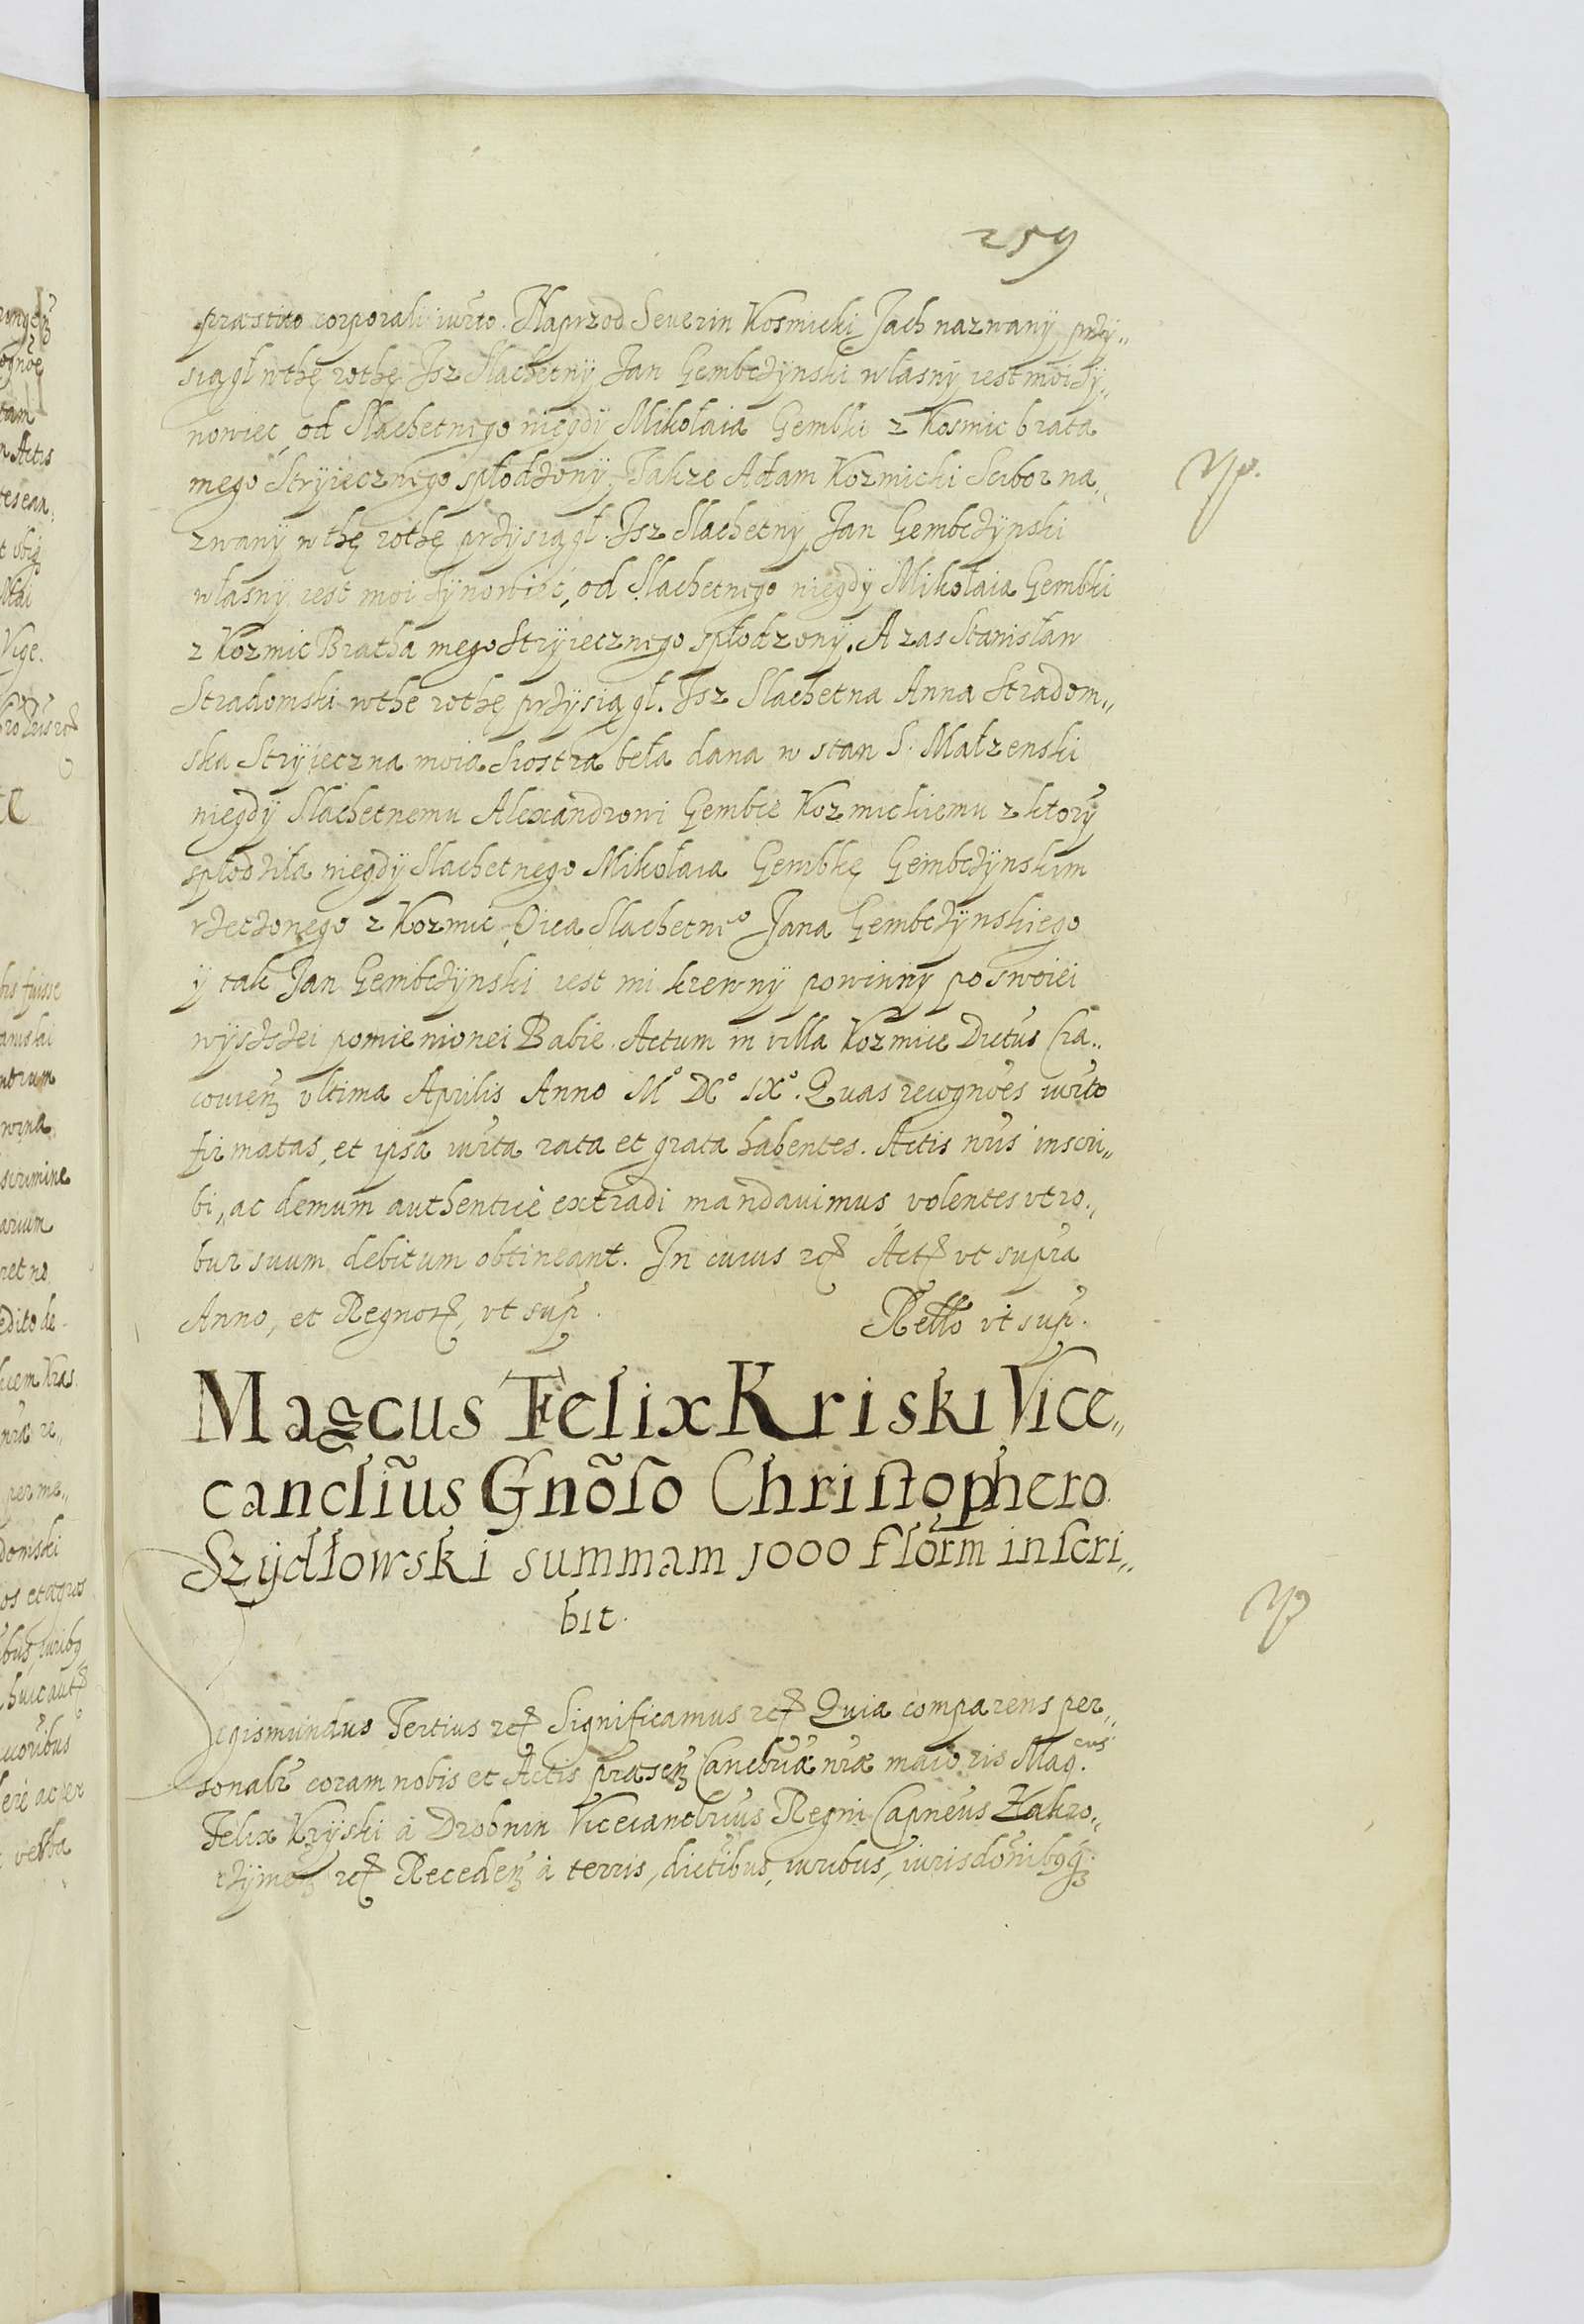 259
præstito corporali iurto. Naprzod Seuerin Kosmicki Jach nazwanÿ przÿ„
siągł wthę rothę Jsz Slachetnÿ Jan Gembczÿnski wlasnÿ iest moi sÿ„
nowiec, od Slachetnego niegdÿ Mikołaia Gembki z Kosmic brata
mego Strÿiecznego spłodzonÿ. Takze Adam Kozmicki Scibor na„
zwanÿ w thę rothę przÿsiągł. Jsz Slachetnÿ Jan Gembczÿnski
własnÿ iest moi sÿnowiec, od Slachetnego niegdÿ Mikołaia Gembki
z Kozmic Bratha mego Strÿiecznego spłodzonÿ. A zas Stanisław
Stradomski wthe rothę przÿsiągł. Jsz Slachetna Anna Stradom„
ska Strÿieczna moia Siostra beła dana w stan S. Małzenski
niegdÿ Slachetnemu Alexandrowi Gembie Kozmickiemu z ktorÿ
spłodziła niegdÿ Slachetnego Mikołaia Gembkę Gembczÿnskim
rzeczonego z Kozmic Oica Slachetne⁰ Jana Gembczÿnskiego
ÿ tak Jan Gembczÿnski iest mi krewnÿ powinnÿ po swoiei
wÿszszei pomienionei Babie. Actum in villa Kozmice Dictus Cra„
couieñ vltima Aprilis Anno M° DC° IX°. Quas recognões iurto
firmatas, et ipsa iurta rata et grata habentes. Actis nris inscri„
bi, ac demum authenticè extradi mandauimus volentes vt ro„
bur suum debitum obtineant. In cuius rcꝭ Actꝭ vt supra
Anno, et Regnorꝭ, vt sup. Rello vt sup.
Magcus Felix Kriski Vice„
canclius Gnõso Christophero
Szÿdłowski summam 1000 florm inscri„
bit.
Sigismundus Tertius rcꝭ Significamus rcꝭ Quia comparens per„
sonalr coram nobis et Actis præseñ Cancriæ nræ maioris Mag.cus
Felix Krÿski à Drobnin Vicecanclrius Regni Capneus Zakro„
czÿmeñ rcꝭ Recedeñ à terris, dictibus, iuribus, iurisdõnibqꝫ